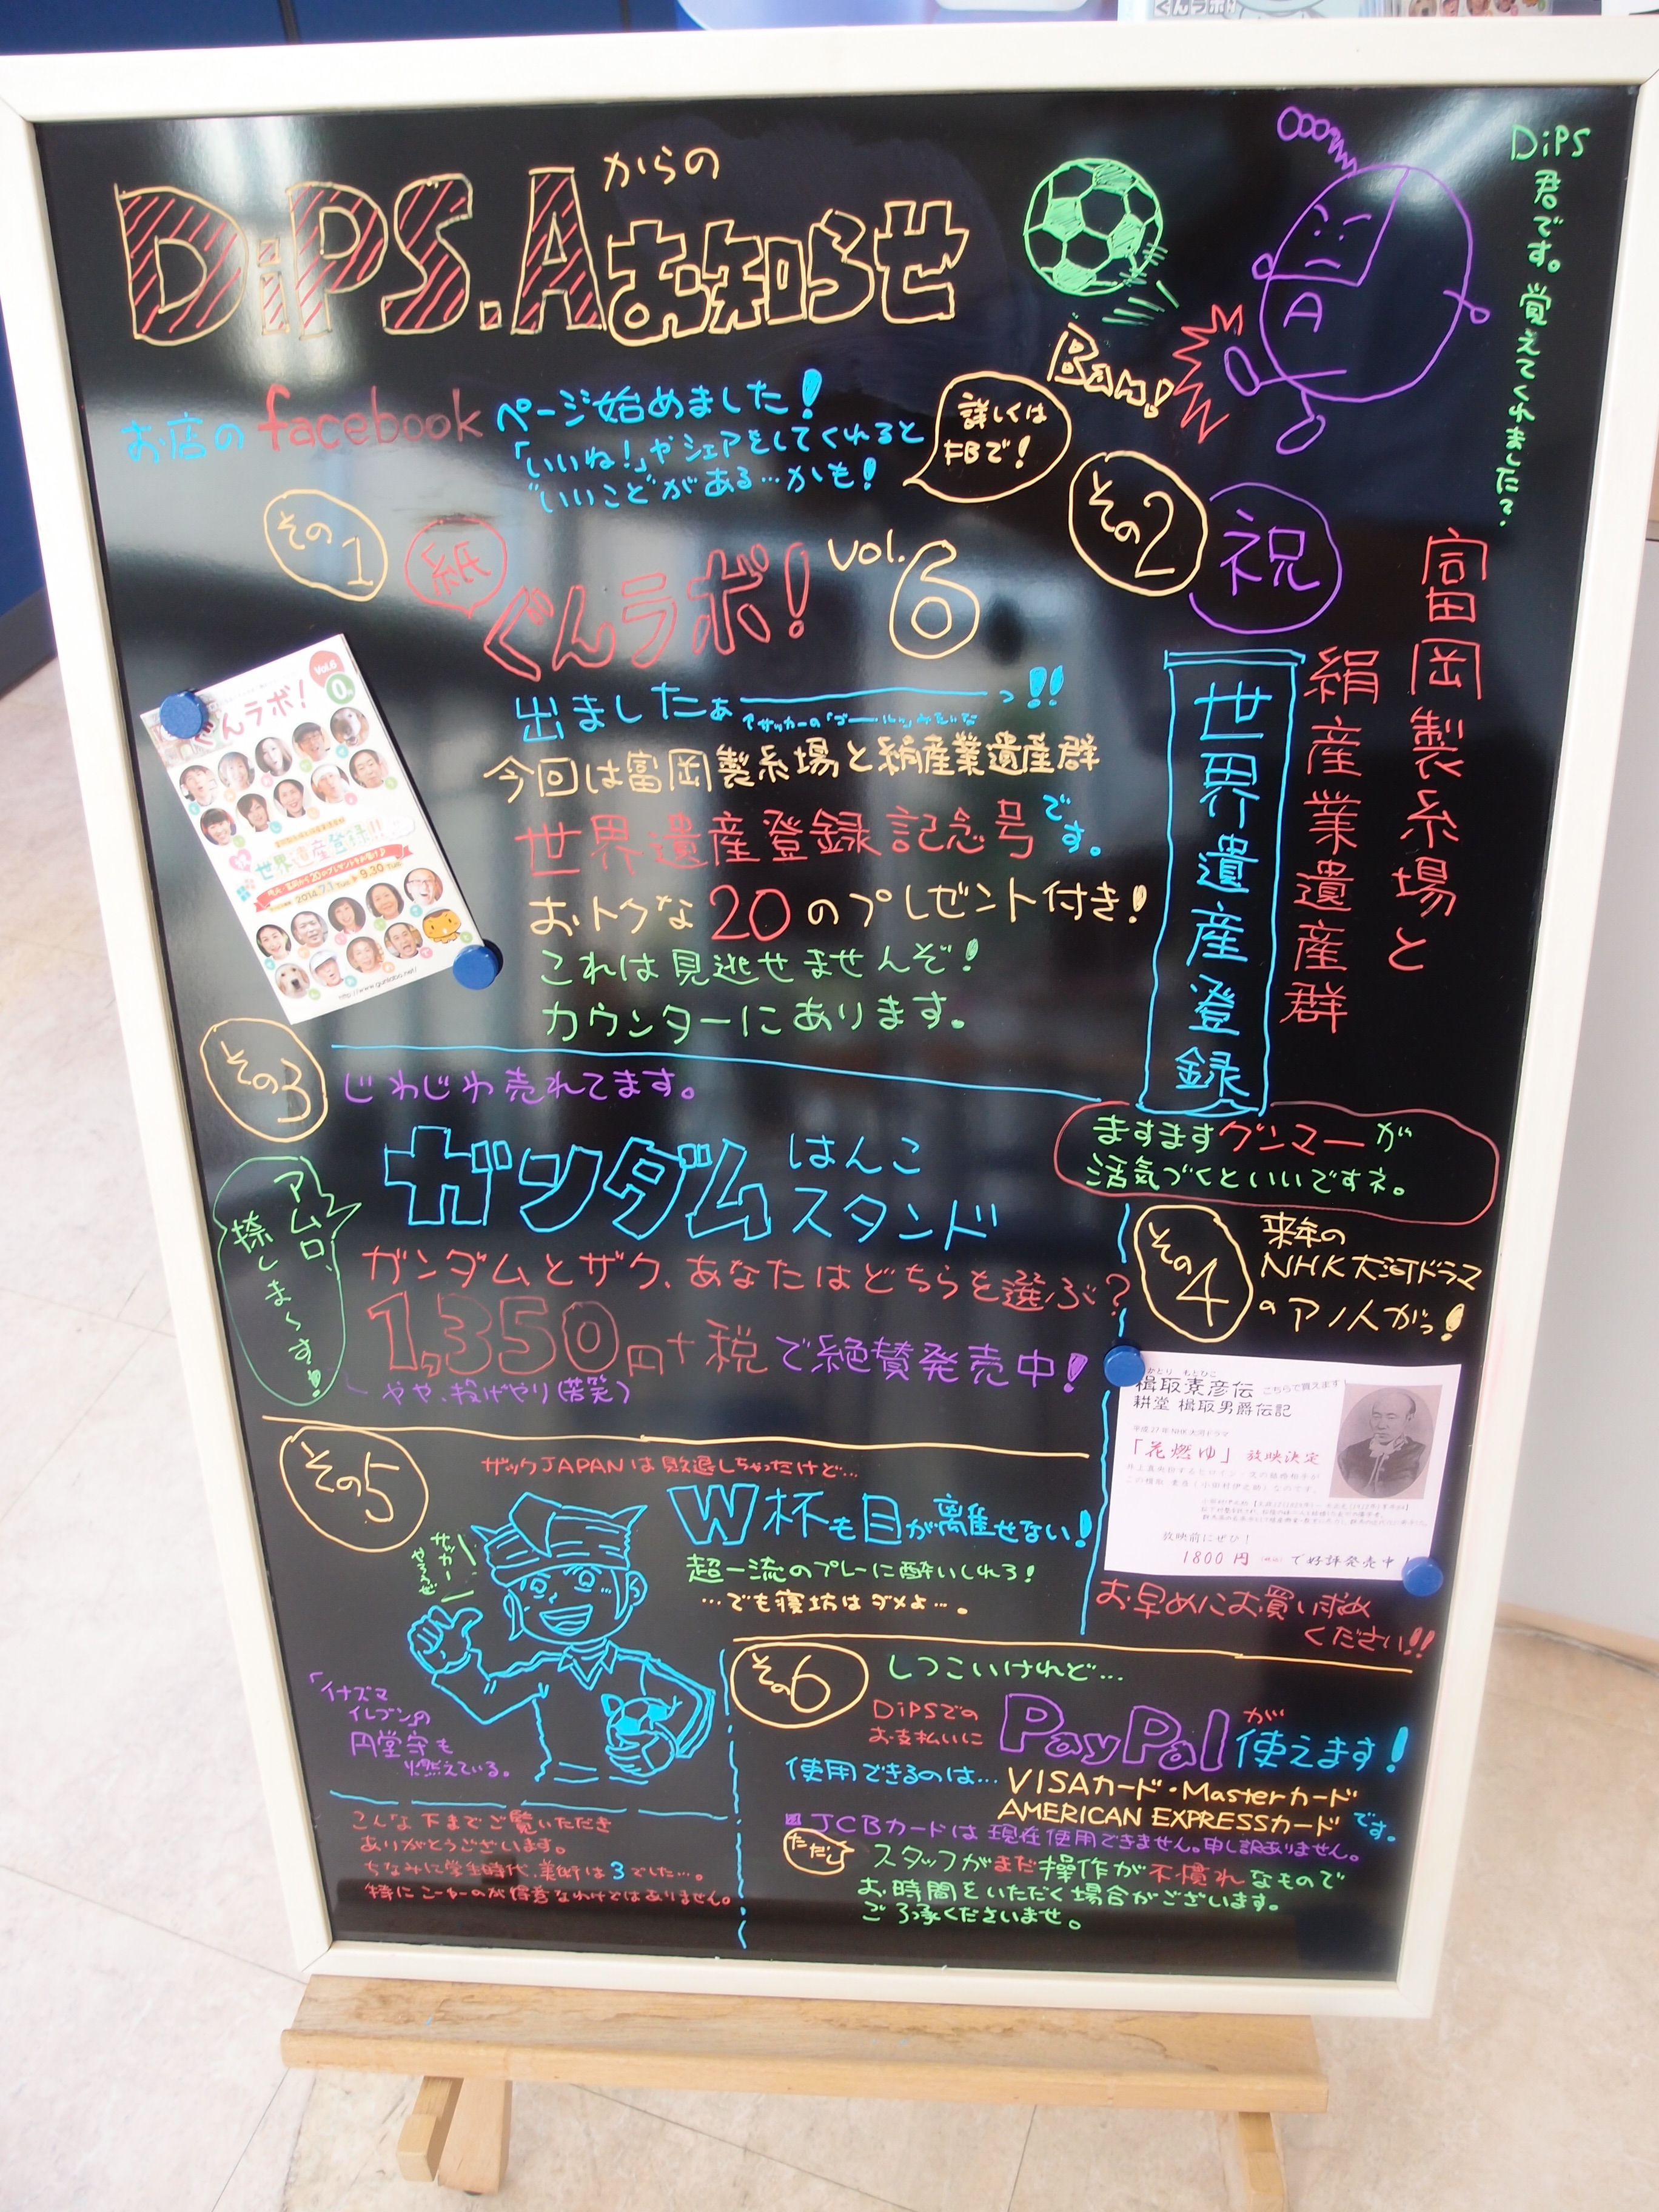 DiPS.Aからの
お知らせ
DiPS君です。覚えてくれましたか?
Bam!
お店のfacebookページ始めました!
「いいね!」やシェアをしてくれると
"いいこと"がある…かも!
詳しくは
FBで!
その1
紙
ぐんラボ! vol.6
出ましたぁーっ!!
今回は富岡製糸場と絹産業遺産群
世界遺産登録記念号です。
おトクな20のプレゼント付き!
これは見逃せませんぞ!
カウンターにあります。
ぐんラボ!
Vol.6
世界遺産登録!!
2014.7.1 Tue 9.30 Tue
http://www.gunlabo.net/
その2
祝
富岡製糸場と
絹産業遺産群
世界遺産登録
ますますグンマーが
活気づくといいですネ。
その3
じわじわ売れてます。
ガンダム はんこ
スタンド
アムロ、
捺しま〜す!
ガンダムとザク、あなたはどちらを選ぶ?
1,350円+税で絶賛発売中!
やや、投げやり(苦笑)
その4
来年の
NHK大河ドラマ
のアノ人がっ!
かとり もとひこ
楫取素彦伝 こちらで買えます!
耕堂 楫取男爵伝記
平成27年NHK大河ドラマ
「花燃ゆ」放映決定
放映前にぜひ!
1800円 で好評発売中!
お早めにお買い求め
ください!!
その5
ザックJAPANは敗退しちゃったけど…
W杯も目が離せない!
超一流のプレーに酔いしれろ!
…でも寝坊はダメよ…。
サッカー
やろうぜ
「イナズマ
イレブン」の
円堂守も
燃えている。
その6
しつこいけれど…
DiPSでの
お支払いに
PayPalが使えます!
使用できるのは…VISAカード・Masterカード
AMERICAN EXPRESSカードです。
JCBカードは現在使用できません。申し訳ありません。
ただし
スタッフがまだ操作が不慣れなもので
お時間をいただく場合がございます。
ご了承くださいませ。
こんな下までご覧いただき
ありがとうございます。
ちなみに学生時代、美術は3でした…。
特にこーゆーのが得意なわけではありません。